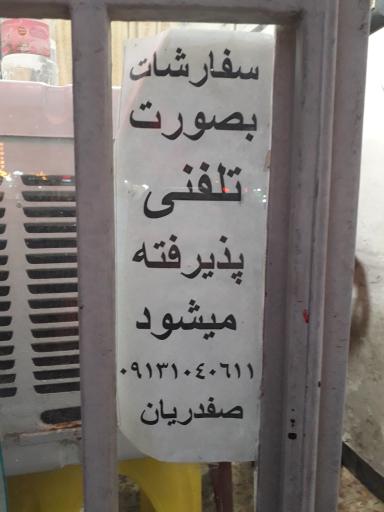 سفارشات
بصورت
تلفنی
پذیرفته
میشود
۰۹۱۳۱۰٤۰٦۱۱
صفدریان